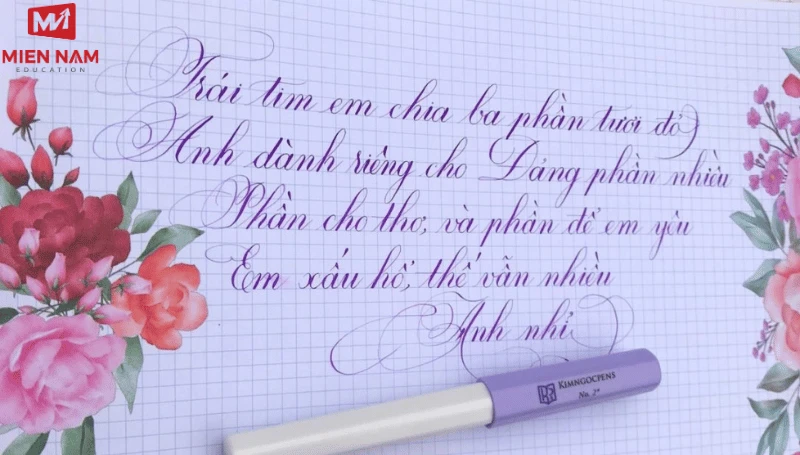 MIEN NAM
EDUCATION
Trái tim em chia ba phần tươi đỏ
Anh dành riêng cho Đảng phần nhiều
Phần cho thơ, và phần để em yêu
Em xấu hổ, thế vẫn nhiều
Anh nhỉ
KIMNGOCPENS
No. 2